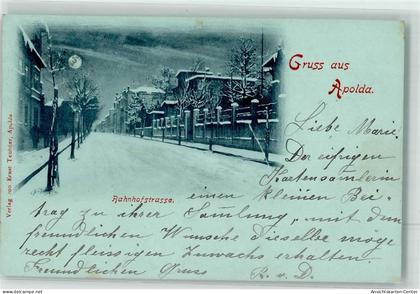 Gruss aus
Apolda.
Liebe Marie!
Der eifrigen
Kartensamlerin
einen kleinen Bei-
trag zu ihrer Samlung, mit dem
freundlichen Wunsche dieselbe möge
recht fleissigen Zuwachs erhalten
Freundlichen Gruss R. v. D.
Bahnhofstrasse.
Verlag von Ernst Teubner, Apolda
Ansichtskarten-Center